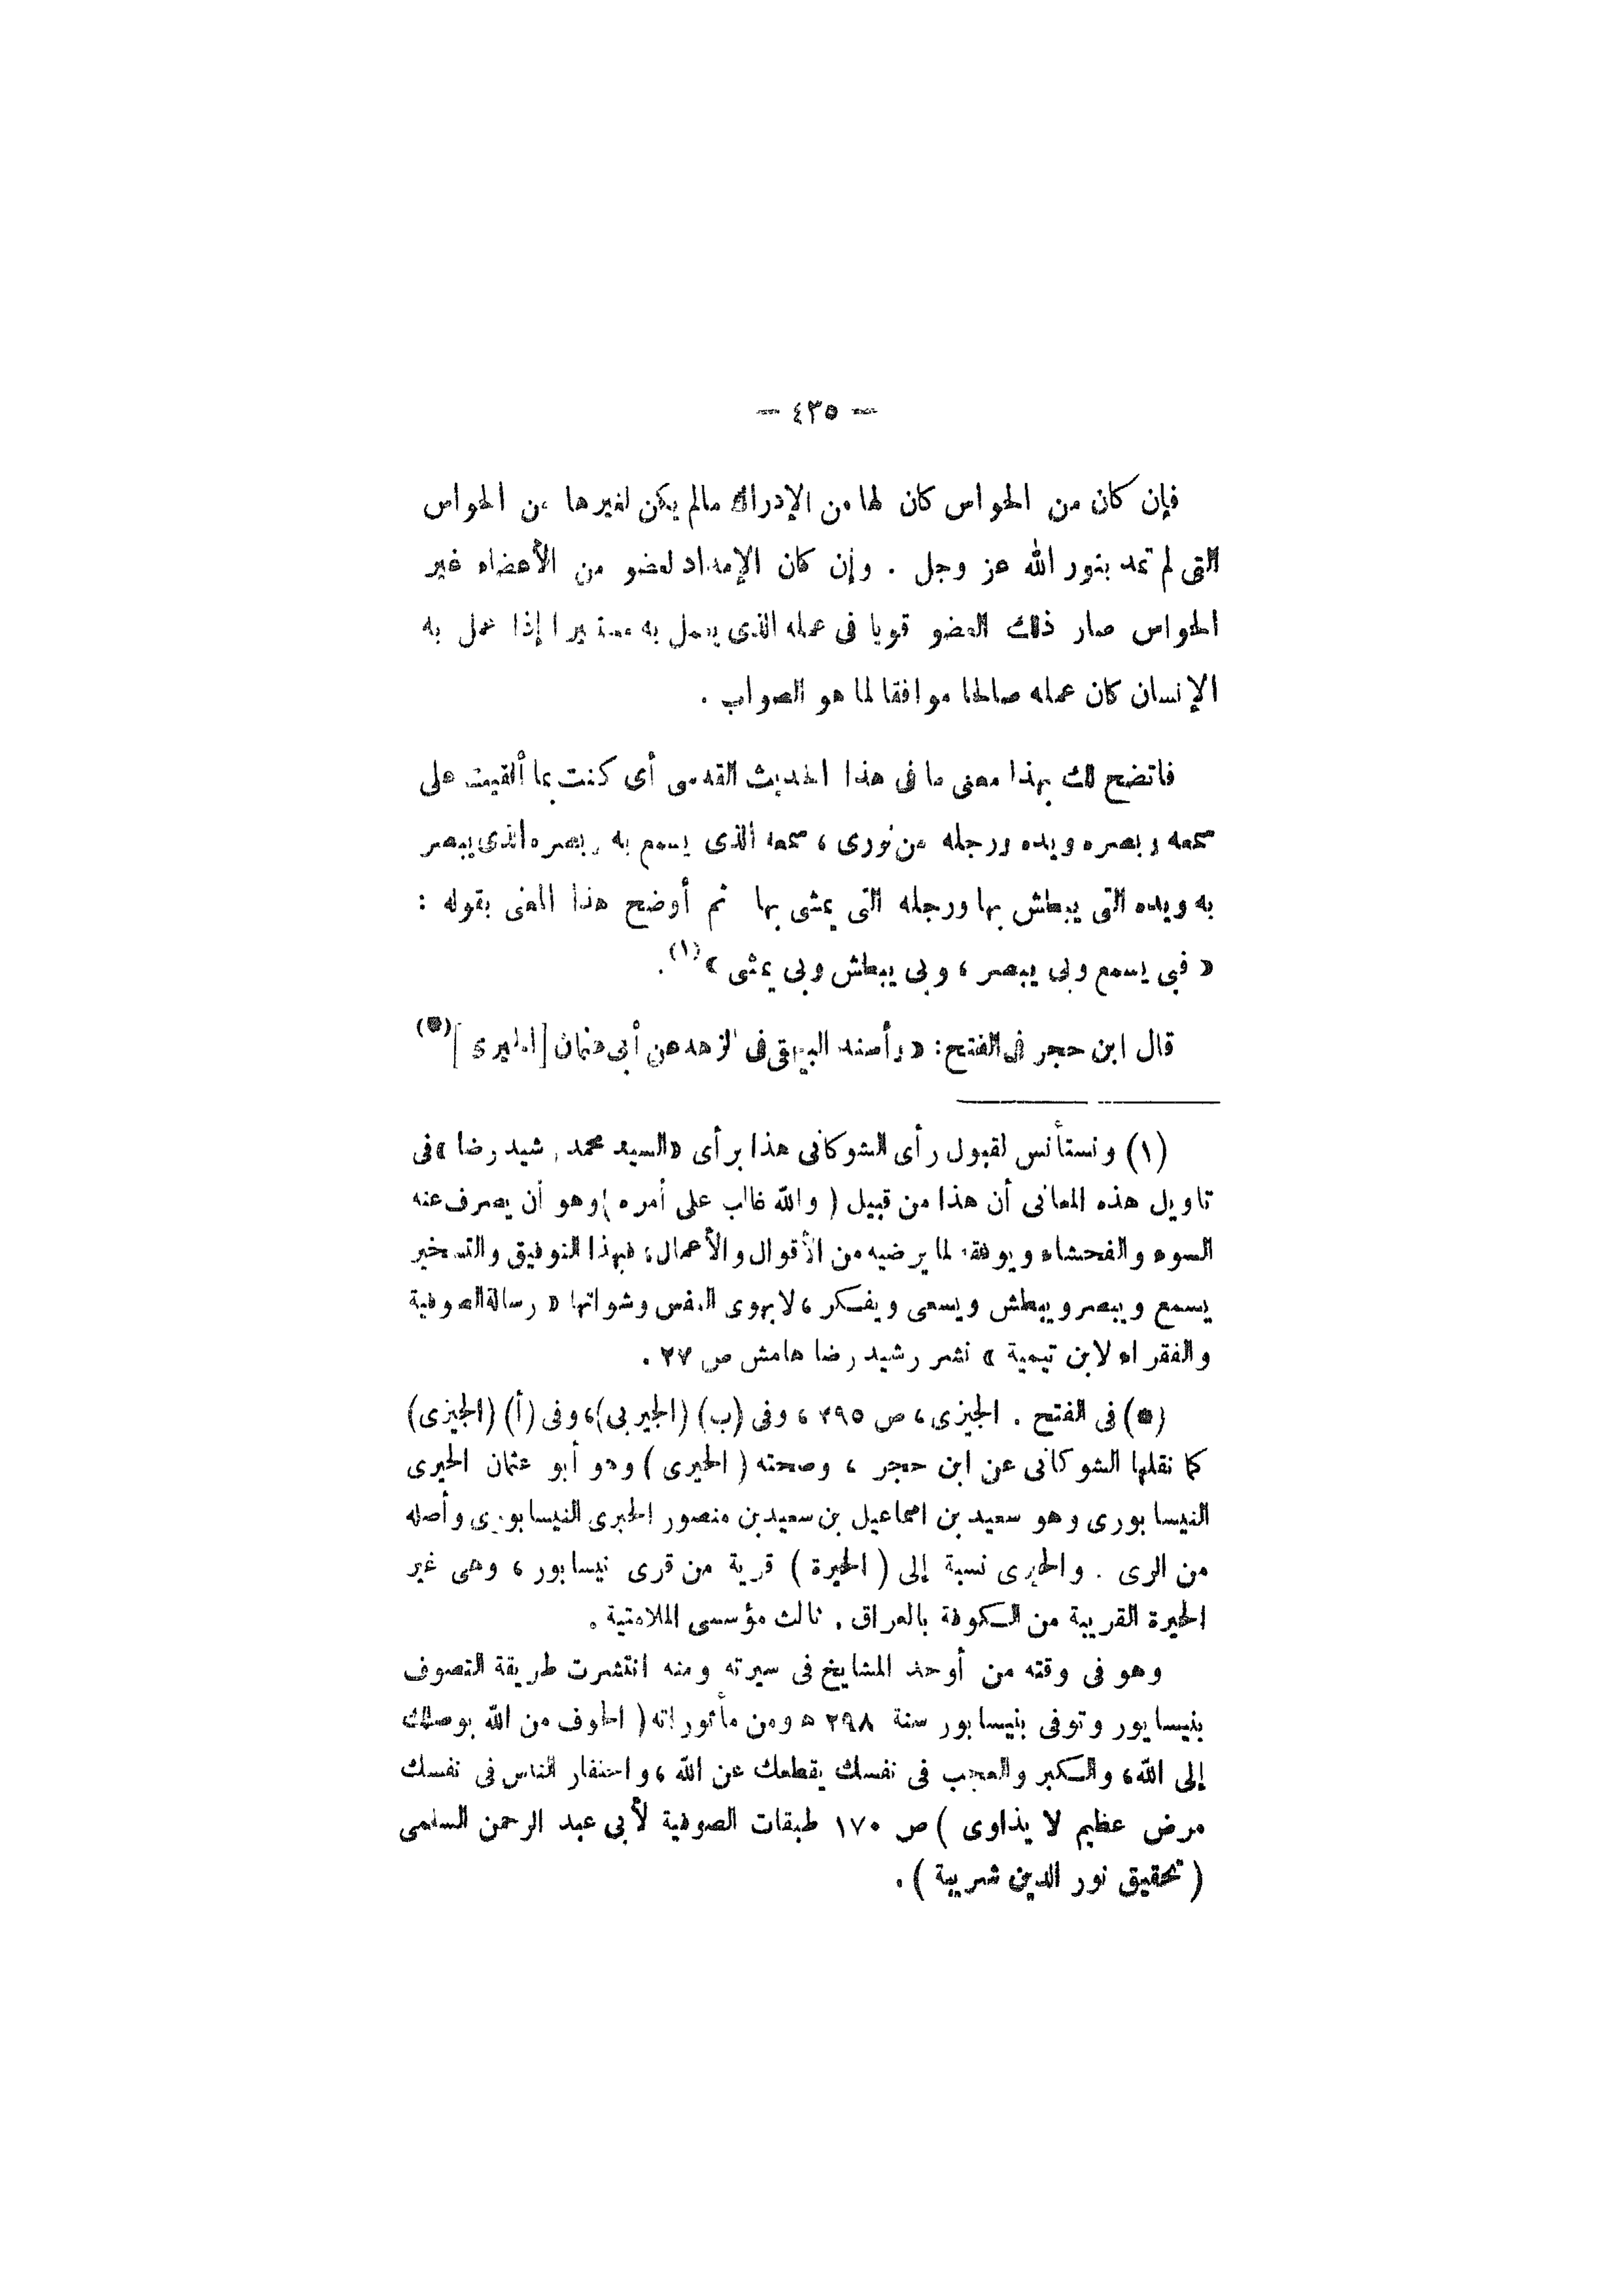 — ٤٣٥ —
فإن كان من الحواس كان لها من الإدراك مالم يكن لغيرها من الحواس
التى لم تمد بنور الله عز وجل . وإن كان الإمداد لعضو من الأعضاء غير
الحواس صار ذلك العضو قويا فى عمله الذى يعمل به مستنيرا إذا عمل به
الإنسان كان عمله صالحا موافقا لما هو الصواب .
فاتضح لك بهذا معنى ما فى هذا الحديث القدسى أى كنت بما ألقيت على
سمعه وبصره ويده ورجله من نورى ، سمعه الذى يسمع به وبصره الذى يبصر
به ويده التى يبطش بها ورجله التى يمشى بها ثم أوضح هذا المعنى بقوله :
« فبى يسمع وبى يبصر ، وبى يبطش وبى يمشى »(١).
قال ابن حجر فى الفتح : « وأسند البيهقى فى الزهد عن أبى عثمان [الحيرى](*)
(١) ونستأنس لقبول رأى الشوكانى هذا برأى «السيد محمد رشيد رضا» فى
تاويل هذه المعانى أن هذا من قبيل ( والله غالب على أمره ) وهو أن يصرف عنه
السوء والفحشاء ويوفقه لما يرضيه من الأقوال والأعمال ، فبهذا التوفيق والتسخير
يسمع ويبصر ويبطش ويسعى ويفكر ، لا بهوى النفس وشواتها « رسالة الصوفية
والفقراء لابن تيمية » نشر رشيد رضا هامش ص ٢٧ .
(*) فى الفتح . الجيزى ، ص ٢٩٥ ، وفى (ب) (الجيربى) ، وفى (أ) (الجيزى)
كما نقلها الشوكانى عن ابن حجر ، وصحته ( الحيرى ) وهو أبو عثمان الحيرى
النيسابورى وهو سعيد بن اسماعيل بن سعيد بن منصور الحيرى النيسابورى وأصله
من الرى . والحيرى نسبة إلى ( الحيرة ) قرية من قرى نيسابور ، وهى غير
الحيرة القريبة من الكوفة بالعراق . ثالث مؤسسى الملامتية .
وهو فى وقته من أوحد المشايخ فى سيرته ومنه انتشرت طريقة التصوف
بنيسابور وتوفى بنيسابور سنة ٢٩٨ ه ومن مأثوراته ( الخوف من الله يوصلك
إلى الله ، والكبر والعجب فى نفسك يقطعك عن الله ، واحتقار الناس فى نفسك
مرض عظيم لا يذاوى ) ص ١٧٠ طبقات الصوفية لأبى عبد الرحمن السلمى
( تحقيق نور الدين شريبة ) .